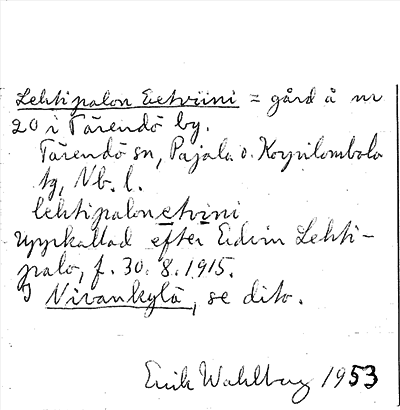 Lehtipalon Eetviini = gård å nr
20 i Tärendö by.
Tärendö sn, Pajala o. Korpilombolo
tg, Nb. l.
lehtipalonetvini
Uppkallad efter Edvin Lehti-
palo, f. 30. 8. 1915.
I Nivankylä, se dito.
Erik Wahlberg 1953